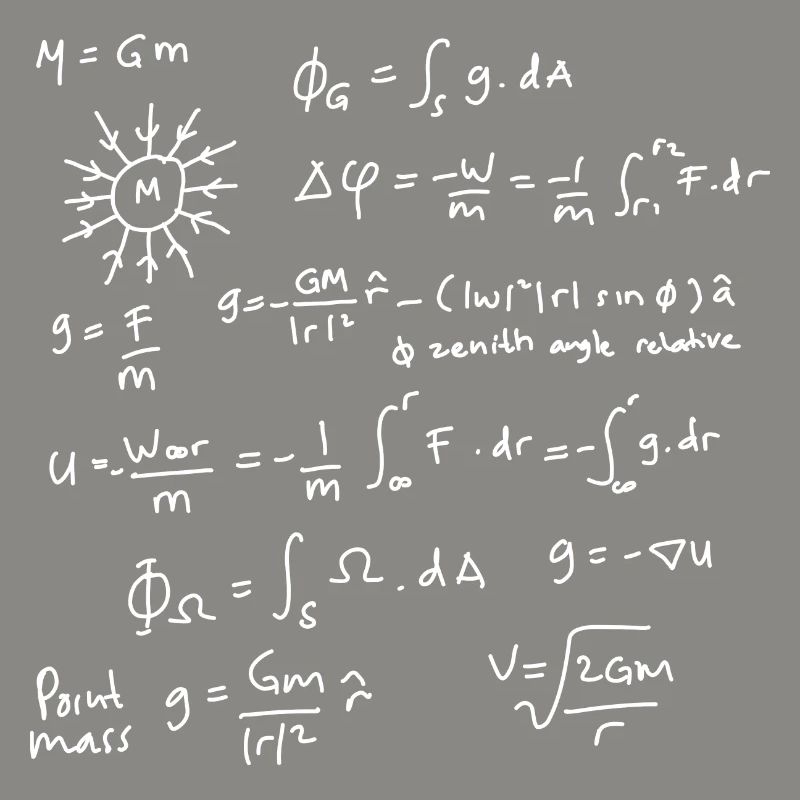 M = Gm
ϕG = ∫S g. dA
M
Δφ = -W/m = -1/m ∫r1^r2 F.dr
g = F/m
g = - GM/|r|² r̂ - (|w|²|r| sin ϕ) â
ϕ zenith angle relative
U = - W∞r/m = - 1/m ∫∞^r F . dr = - ∫∞^r g. dr
ΦΩ = ∫S Ω . dA
g = -∇U
Point mass g = Gm/|r|² r̂
V = √2Gm/r